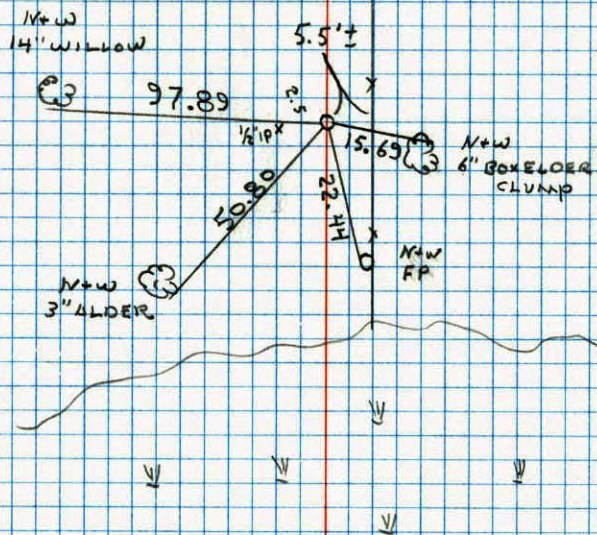 N+W
14" WILLOW
5.5'±
97.89
2.5
1/2" IP
15.69
N+W
6" BOXELDER
CLUMP
50.80
22.44
N+W
FP
N+W
3" ALDER